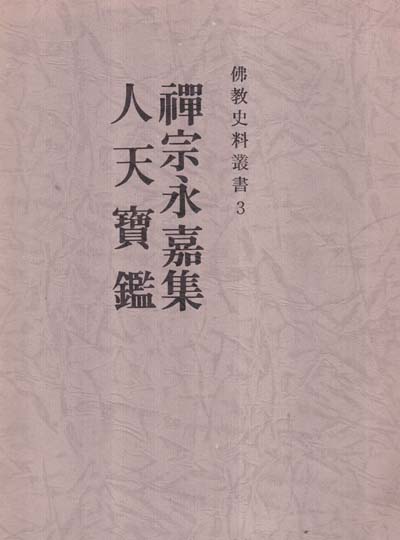 佛教史料叢書3
禪宗永嘉集
人天寶鑑